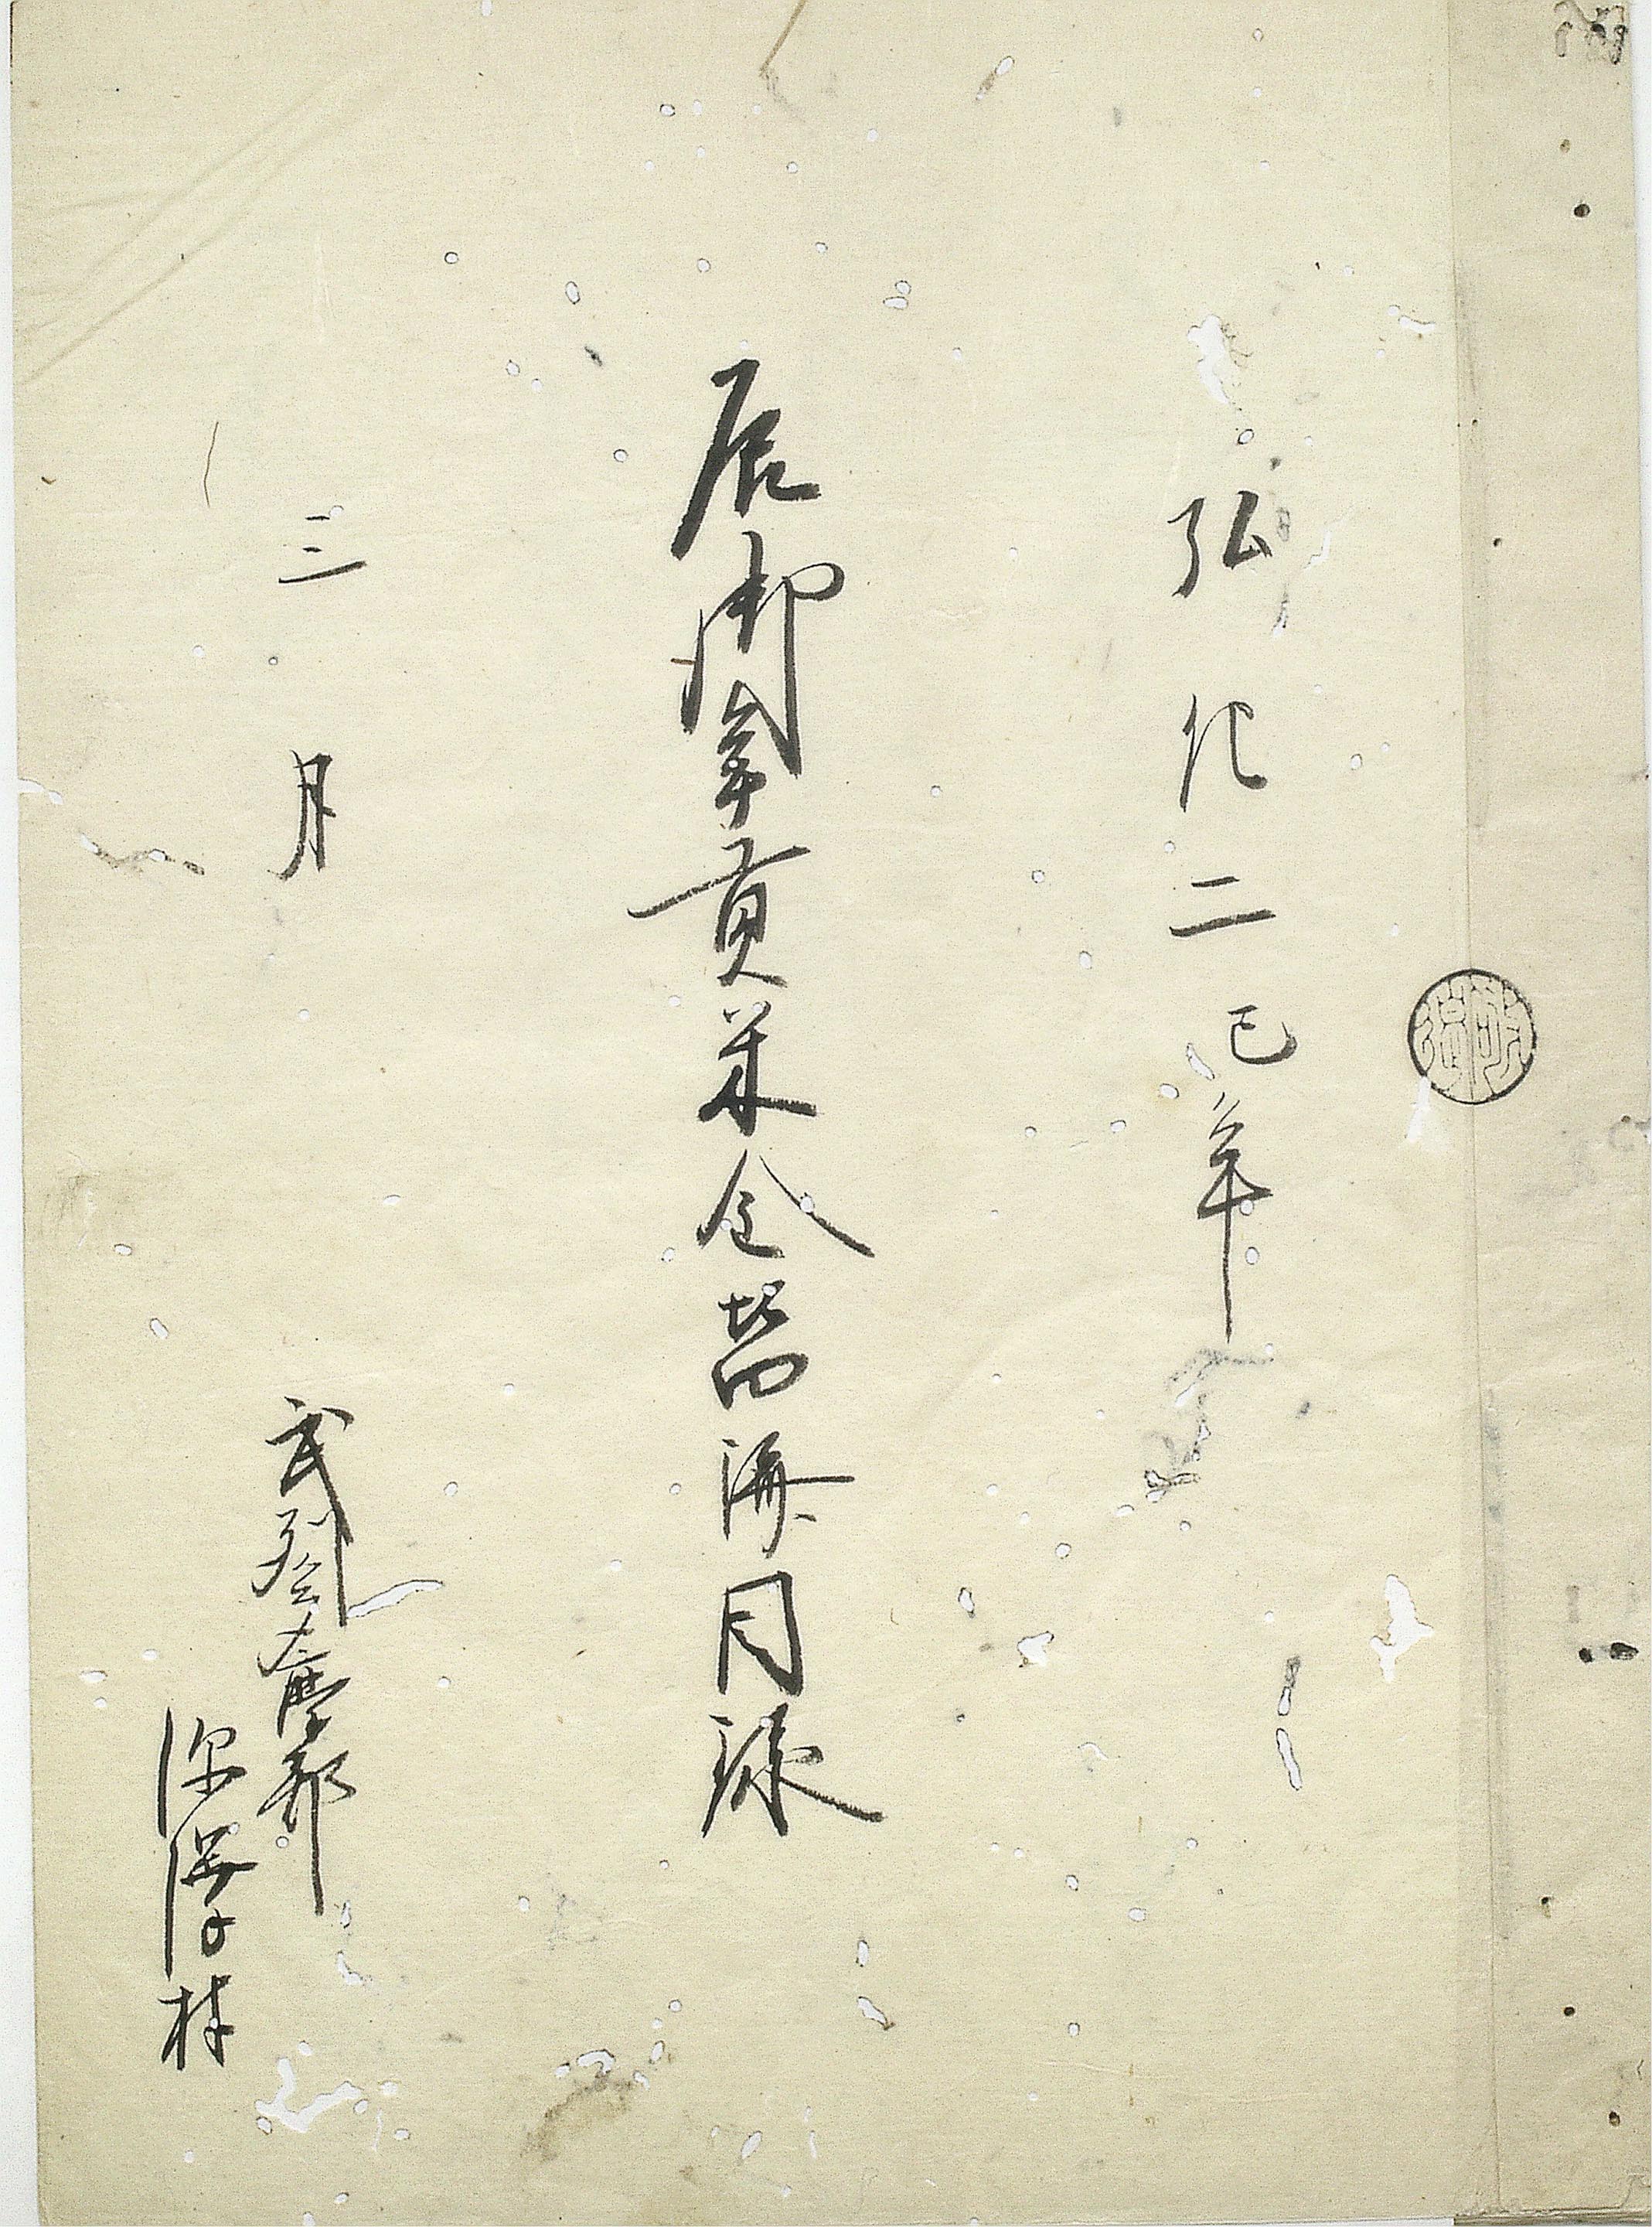 弘化二巳年
辰御年貢米金皆済目録
三月
武州多摩郡
深澤村